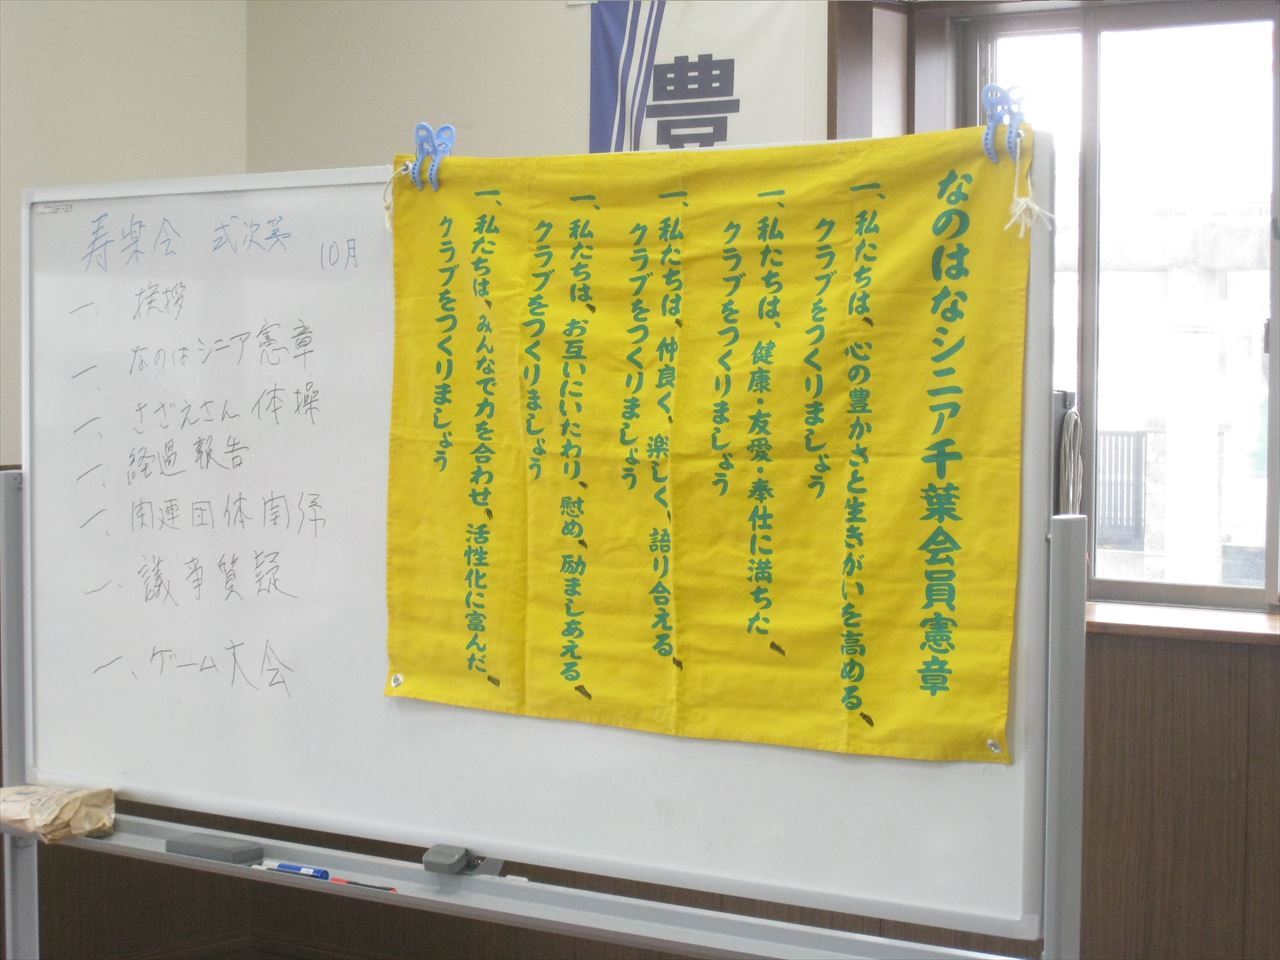 豊
寿楽会 式次第
10月
一、挨拶
一、なのはシニア憲章
一、さざえさん体操
一、経過報告
一、関連団体関係
一、議事質疑
一、ゲーム大会
なのはなシニア千葉会員憲章
一、私たちは、心の豊かさと生きがいを高める、
クラブをつくりましょう
一、私たちは、健康・友愛・奉仕に満ちた、
クラブをつくりましょう
一、私たちは、仲良く、楽しく、語り合える、
クラブをつくりましょう
一、私たちは、お互いにいたわり、慰め、励ましあえる、
クラブをつくりましょう
一、私たちは、みんなで力を合わせ、活性化に富んだ、
クラブをつくりましょう